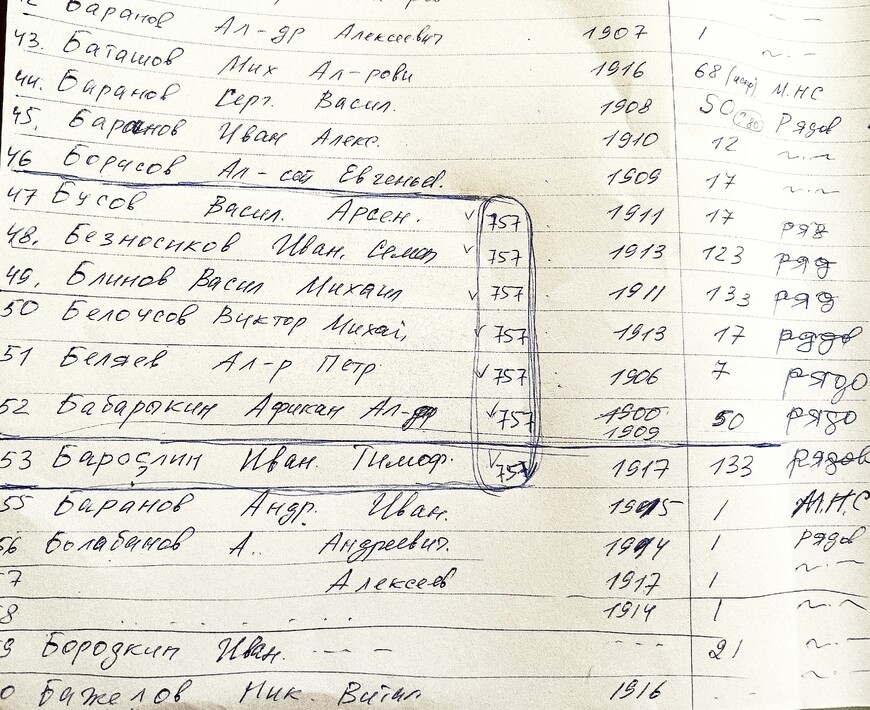 42 Баранов Ал-др Алексеевич 1907 1 ~ . ~
43. Баташов Мих Ал-рови 1916 68 М.НС
44. Баранов Серг. Васил. 1908 50 Рядов
45. Баранов Иван Алекс. 1910 12 ~ . ~
46 Борисов Ал-сей Евгеньев. 1909 17 ~ . ~
47 Бусов Васил. Арсен. ✓ 757 1911 17 ряд
48. Безносиков Иван. Семен ✓ 757 1913 123 ряд
49. Блинов Васил Михаил ✓ 757 1911 133 ряд
50 Белоусов Виктор Михай, ✓ 757 1913 17 рядов
51 Беляев Ал-р Петр ✓ 757 1906 7 рядо
52 Бабарыкин Африкан Ал-др ✓ 757 1900 50 рядо
1909
53 Барослин Иван. Тимоф. ✓ 757 1917 133 рядов
?
55 Баранов Андр. Иван. 1915 1 М.Н.С
56 Болабанов А.. Андреевич. 1914 1 рядов
7 Алексеев 1917 1 ~ . ~
8 . . . . . . . 1914 1 ~ . ~
9 Бородкин Иван. - - - - - - 21 ~ . ~
0 Бажелов Ник. Витал. 1916 . . ~ . ~